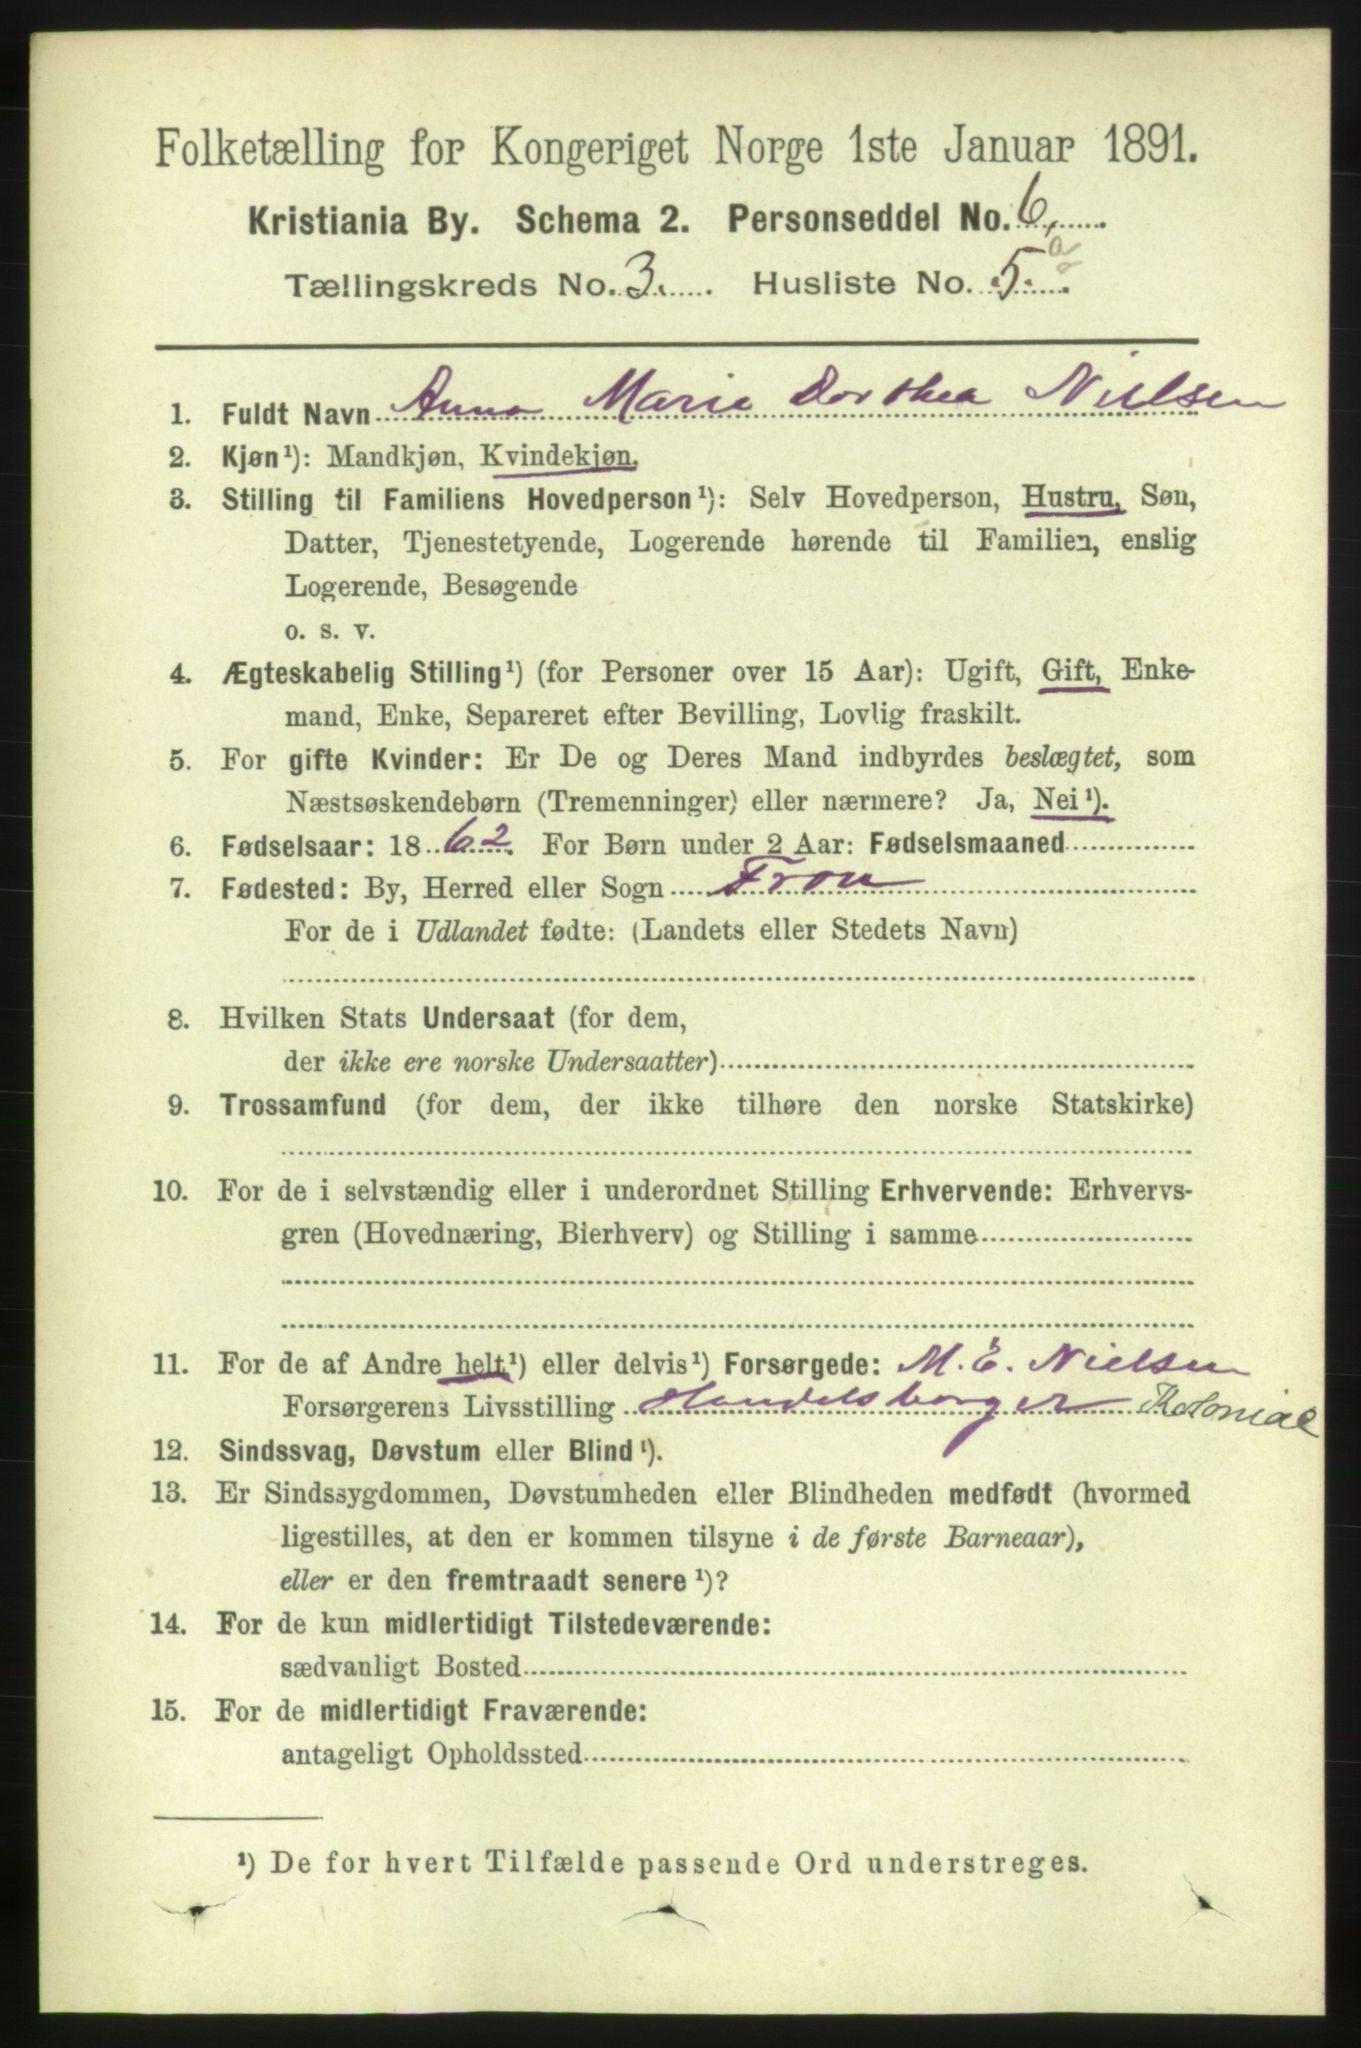 Folketælling for Kongeriget Norge 1ste Januar 1891.
Kristiania By. Schema 2. Personseddel No. 6
Tællingskreds No. 3. Husliste No. 5. a
1. Fuldt Navn Anna Marie Dorthea Nielsen
2. Kjøn¹): Mandkjøn, Kvindekjøn.
3. Stilling til Familiens Hovedperson¹): Selv Hovedperson, Hustru, Søn,
Datter, Tjenestetyende, Logerende hørende til Familien, enslig
Logerende, Besøgende
o. s. v.
4. Ægteskabelig Stilling¹) (for Personer over 15 Aar): Ugift, Gift, Enke-
mand, Enke, Separeret efter Bevilling, Lovlig fraskilt.
5. For gifte Kvinder: Er De og Deres Mand indbyrdes beslægtet, som
Næstsøskendebørn (Tremenninger) eller nærmere? Ja, Nei¹).
6. Fødselsaar: 1862. For Børn under 2 Aar: Fødselsmaaned
7. Fødested: By, Herred eller Sogn Fron
For de i Udlandet fødte: (Landets eller Stedets Navn)
8. Hvilken Stats Undersaat (for dem,
der ikke ere norske Undersaatter)
9. Trossamfund (for dem, der ikke tilhøre den norske Statskirke)
10. For de i selvstændig eller i underordnet Stilling Erhvervende: Erhvervs-
gren (Hovednæring, Bierhverv) og Stilling i samme
11. For de af Andre helt¹) eller delvis¹) Forsørgede: M. E. Nielsen
Forsørgerens Livsstilling Handelsborger Kolonial
12. Sindssvag, Døvstum eller Blind¹).
13. Er Sindssygdommen, Døvstumheden eller Blindheden medfødt (hvormed
ligestilles, at den er kommen tilsyne i de første Barneaar),
eller er den fremtraadt senere¹)?
14. For de kun midlertidigt Tilstedeværende:
sædvanligt Bosted
15. For de midlertidigt Fraværende:
antageligt Opholdssted
¹) De for hvert Tilfælde passende Ord understreges.